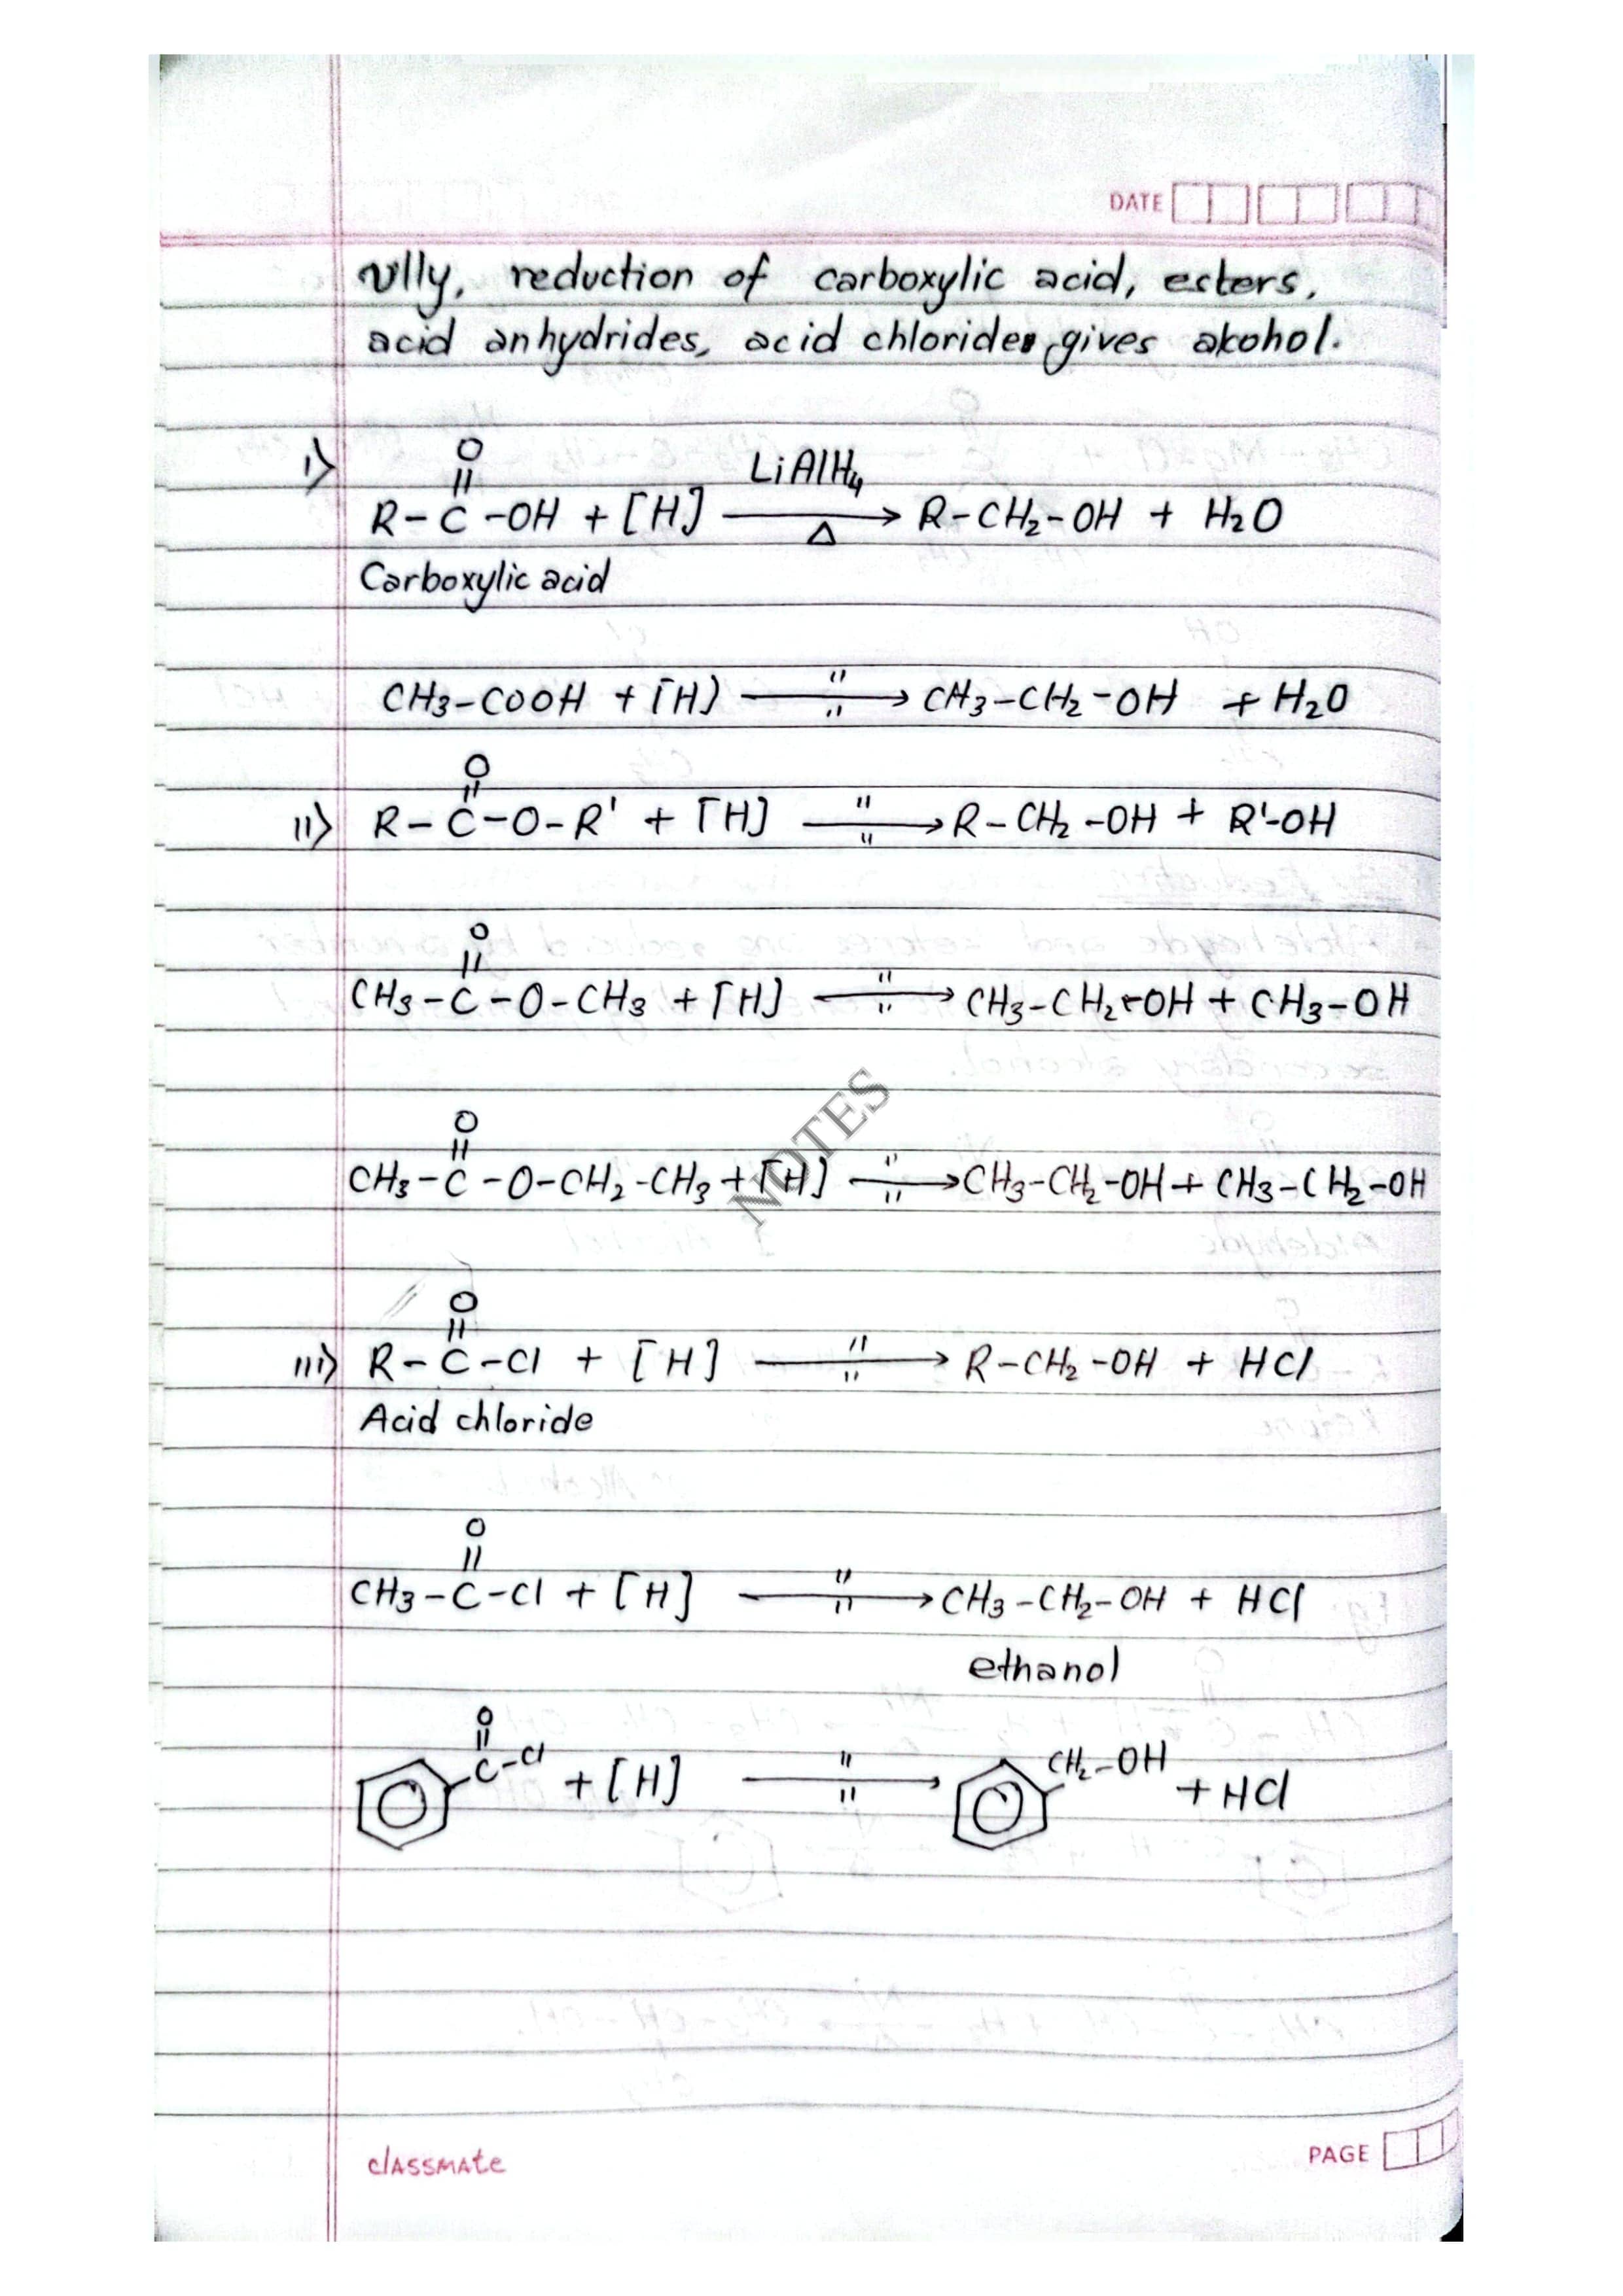 DATE
vlly, reduction of carboxylic acid, esters,
acid anhydrides, acid chlorides gives alcohol.
O
||
i> R-C-OH + [H] LiAlH4 → Δ R-CH2-OH + H2O
Carboxylic acid
CH3-COOH + [H] "→" CH3-CH2-OH + H2O
O
||
ii> R-C-O-R' + [H] "→" R-CH2-OH + R'-OH
O
||
CH3-C-O-CH3 + [H] "→" CH3-CH2-OH + CH3-OH
O
||
CH3-C-O-CH2-CH3 + [H] "→" CH3-CH2-OH + CH3-CH2-OH
NOTES
O
||
iii> R-C-Cl + [H] "→" R-CH2-OH + HCl
Acid chloride
O
||
CH3-C-Cl + [H] "→" CH3-CH2-OH + HCl
ethanol
O
||
C-Cl + [H] "→" CH2-OH + HCl
classmate
PAGE